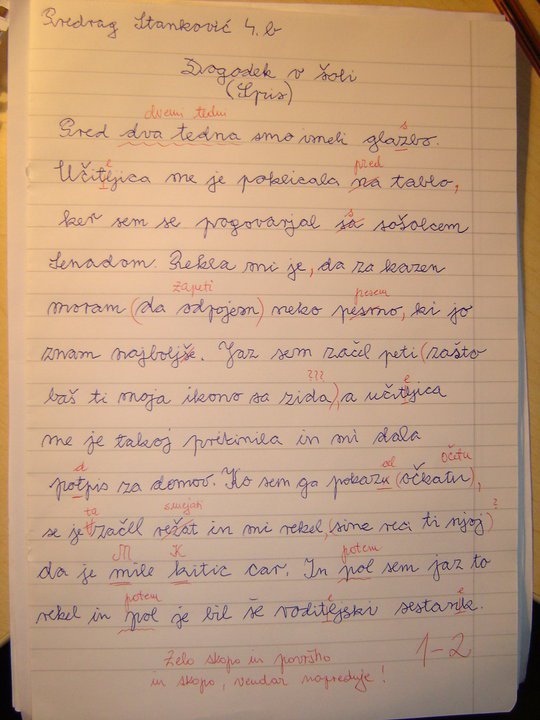 Predrag Stanković 4. b
Dogodek v šoli
(Spis)
dvemi tedni
Pred dva tedna smo imeli glazbo.
s
e
pred
Učitljica me je poklicala na tablo,
ker sem se pogovarjal sa sošolcem
s
Senadom. Rekla mi je, da za kazen
zapeti
pesem
moram (da odpojem) neko pesmo, ki jo
znam najboljše. Jaz sem začel peti (zašto
???
e
baš ti moja ikono sa zida), a učitljica
me je takoj prekinila in mi dala
d
al
očetu
potpis za domov. Ko sem ga pokazu (očkatu),
ta
smejan
?
se je začel režat in mi rekel, (sine reci ti njoj)
M
K
potem
da je mile kitic car. In pol sem jaz to
potem
e
e
rekel in pol je bil še roditljski sestank.
Zelo skopo in površno
in skopo, vendar napreduje!
1-2